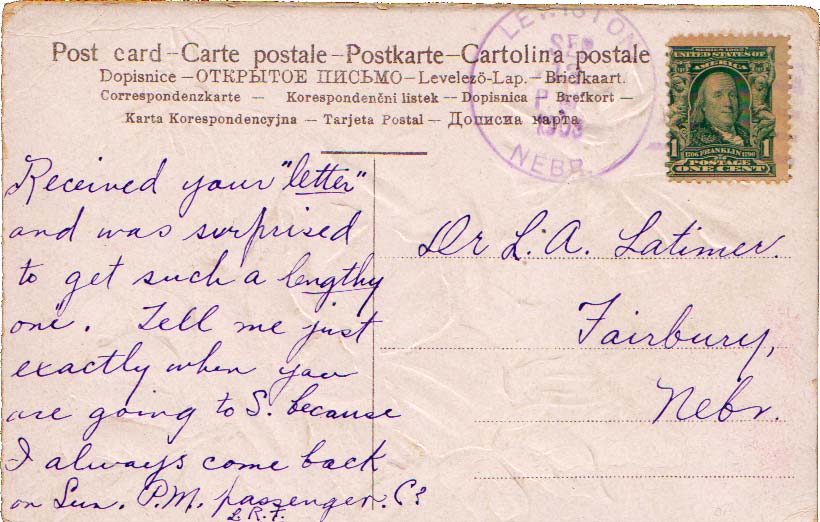 Post card – Carte postale – Postkarte – Cartolina postale
Dopisnice – ОТКРЫТОЕ ПИСЬМО – Levelezö-Lap. – Briefkaart.
Correspondenzkarte – Korespondenční listek – Dopisnica – Brefkort –
Karta Korespondencyjna – Tarjeta Postal – Дописна карта
LEWISTON
SEP
P
NEBR.
SERIES 1902
UNITED STATES OF AMERICA
1706 FRANKLIN 1790
1 1
POSTAGE
ONE CENT
Received your "letter"
and was surprised
to get such a lengthy
"one". Tell me just
exactly when you
are going to S. because
I always come back
on Sun. P.M. passenger.
L.R.F.
Dr L. A. Latimer.
Fairbury,
Nebr.